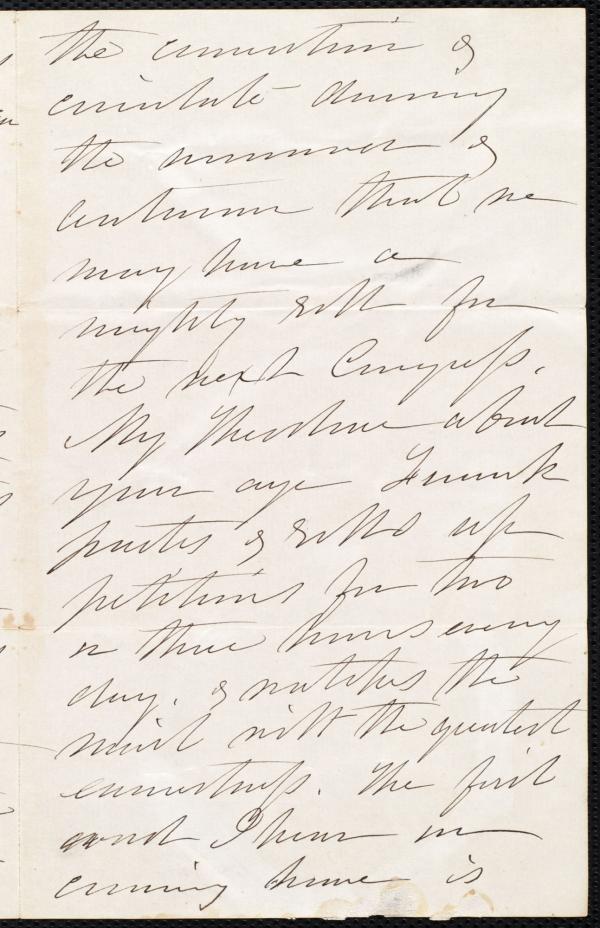 the convention &
circulate during
the summer &
autumn that we
may have a
mighty roll for
the next Congress.
My Theodore about
your age Frank
pastes & rolls up
petitions for two
or three hours every
day. & watches the
mail with the greatest
earnestness. The first
word I hear on
coming home is